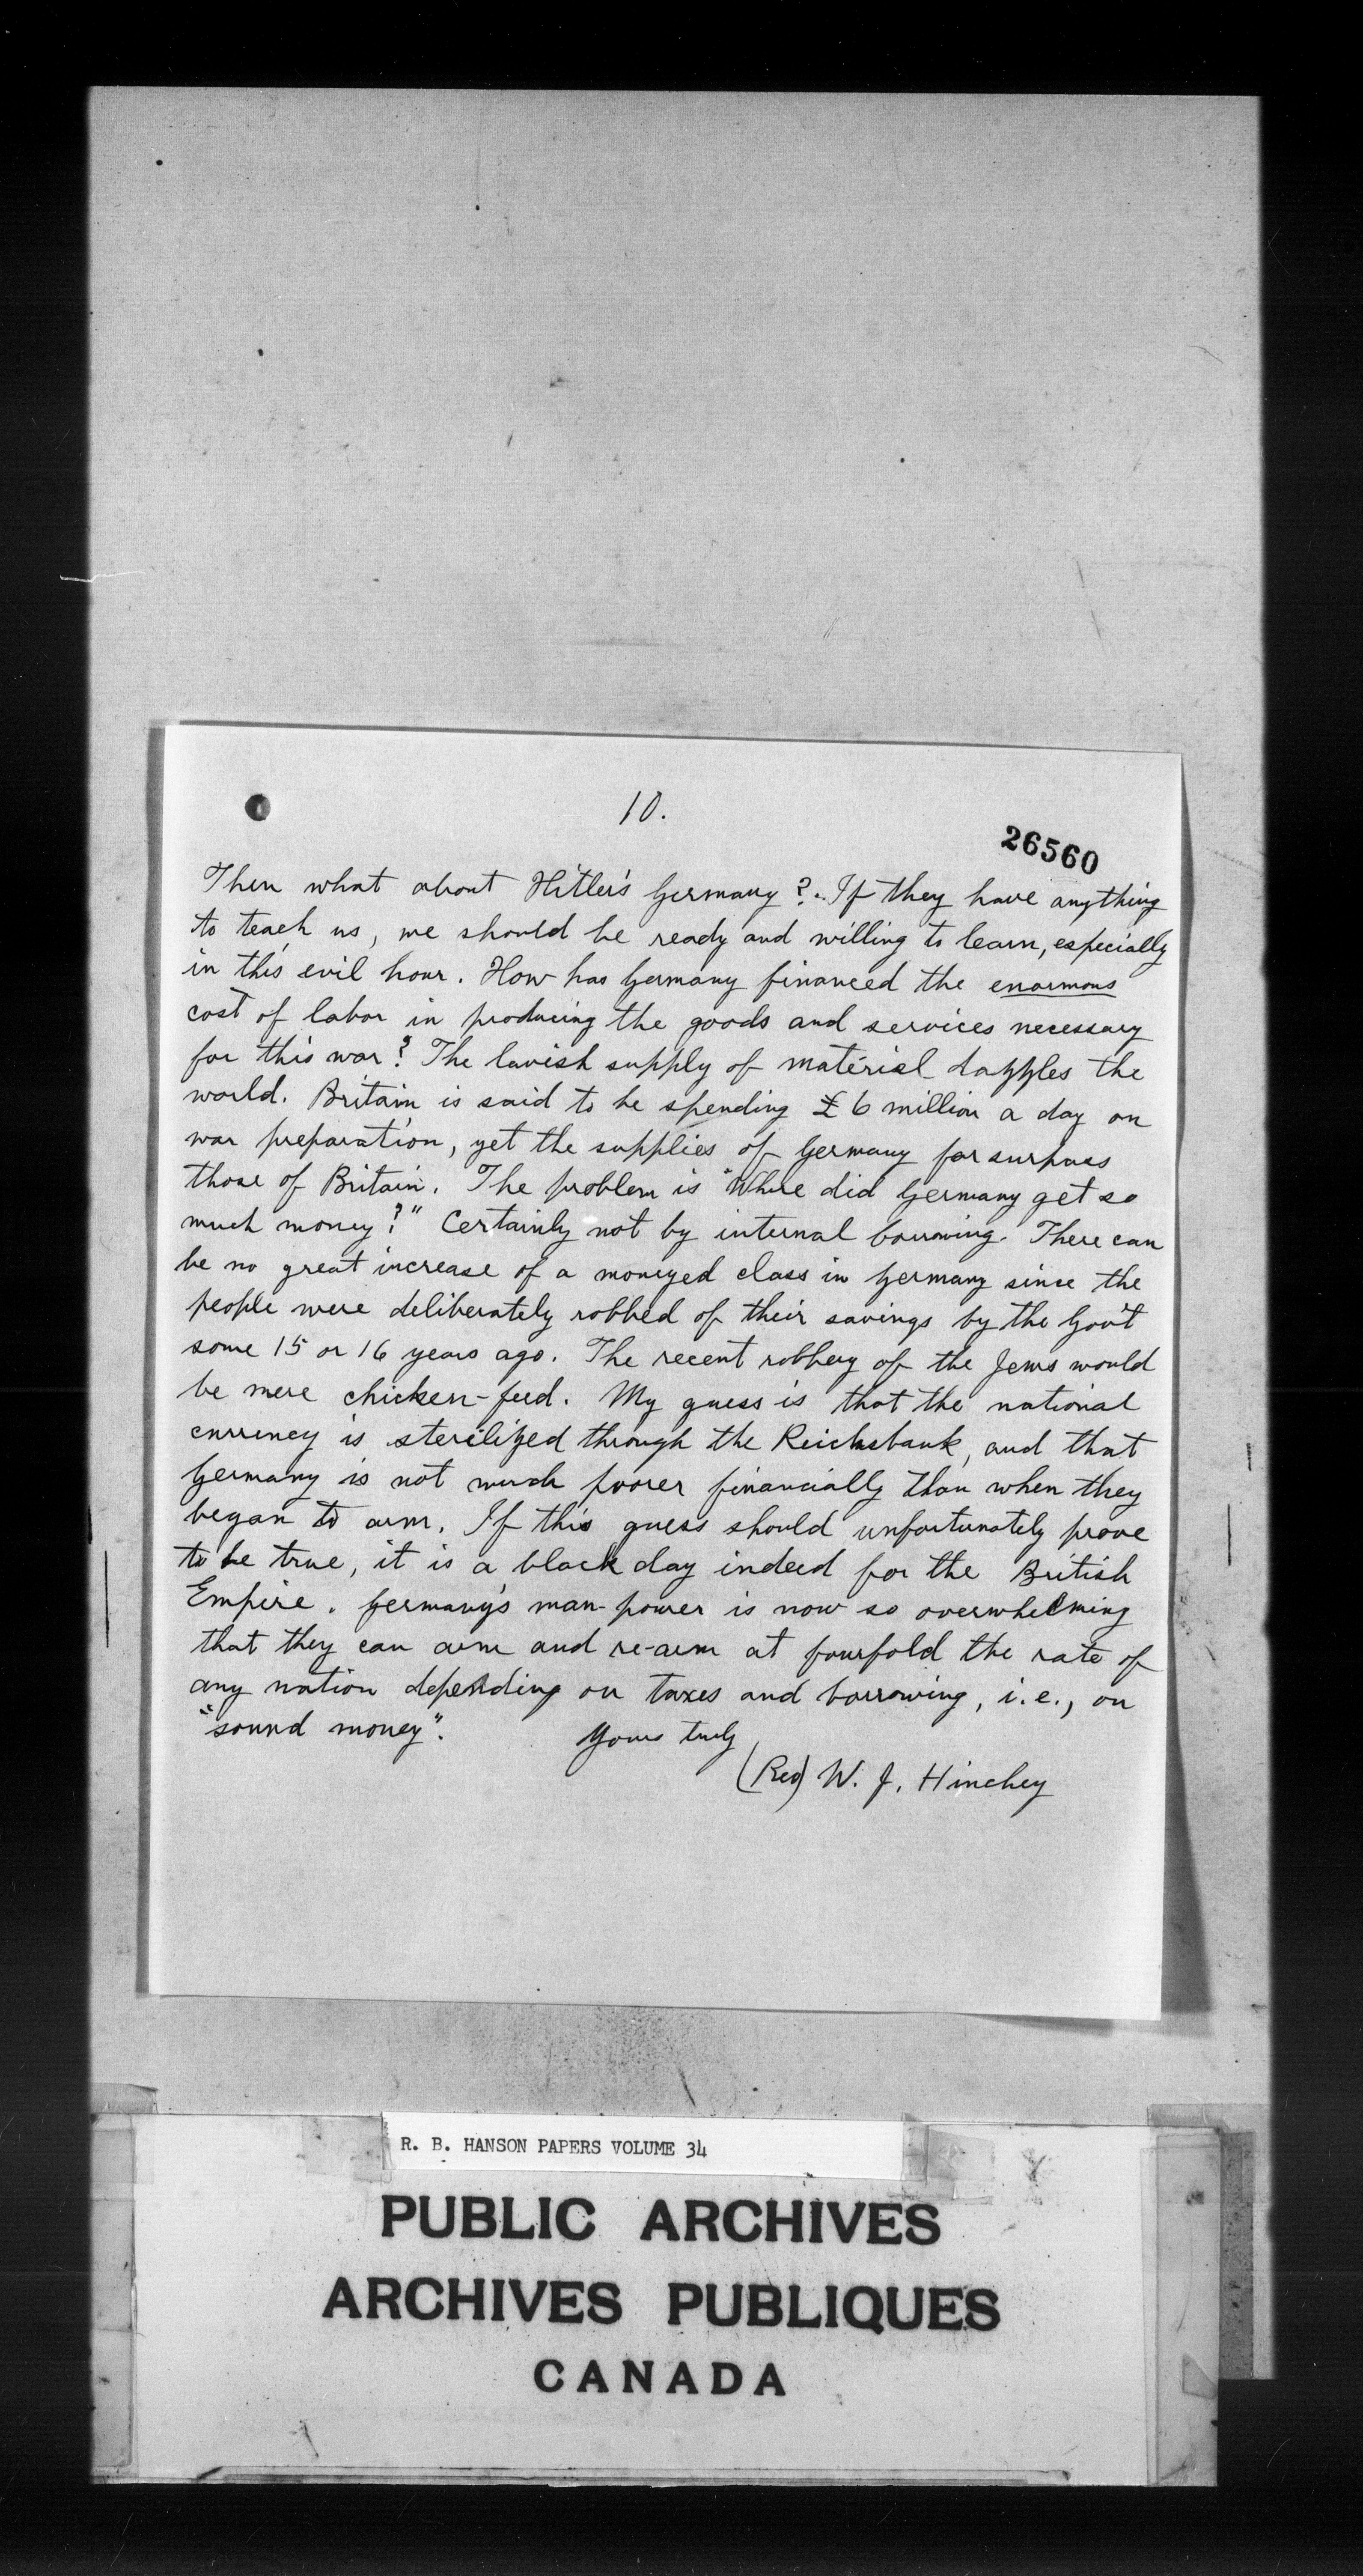 10.
26560
Then what about Hitler's Germany? If they have anything
to teach us, we should be ready and willing to learn, especially
in this evil hour. How has Germany financed the enormous
cost of labor in producing the goods and services necessary
for this war? The lavish supply of material dazzles the
world. Britain is said to be spending £6 million a day on
war preparation, yet the supplies of Germany far surpass
those of Britain. The problem is "Where did Germany get so
much money?" Certainly not by internal borrowing. There can
be no great increase of a moneyed class in Germany since the
people were deliberately robbed of their savings by the Gov't
some 15 or 16 years ago. The recent robbery of the Jews would
be mere chicken-feed. My guess is that the national
currency is sterilized through the Reichsbank, and that
Germany is not much poorer financially than when they
began to arm. If this guess should unfortunately prove
to be true, it is a black day indeed for the British
Empire. Germany's man-power is now so overwhelming
that they can arm and re-arm at fourfold the rate of
any nation depending on taxes and borrowing, i.e., on
"sound money".
Yours truly
(Rev) W. J. Hinchey
R. B. HANSON PAPERS VOLUME 34
PUBLIC ARCHIVES
ARCHIVES PUBLIQUES
CANADA